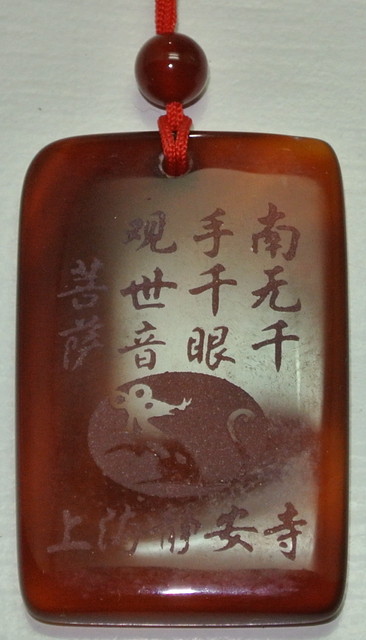 南无千
手千眼
观世音
菩萨
上海静安寺